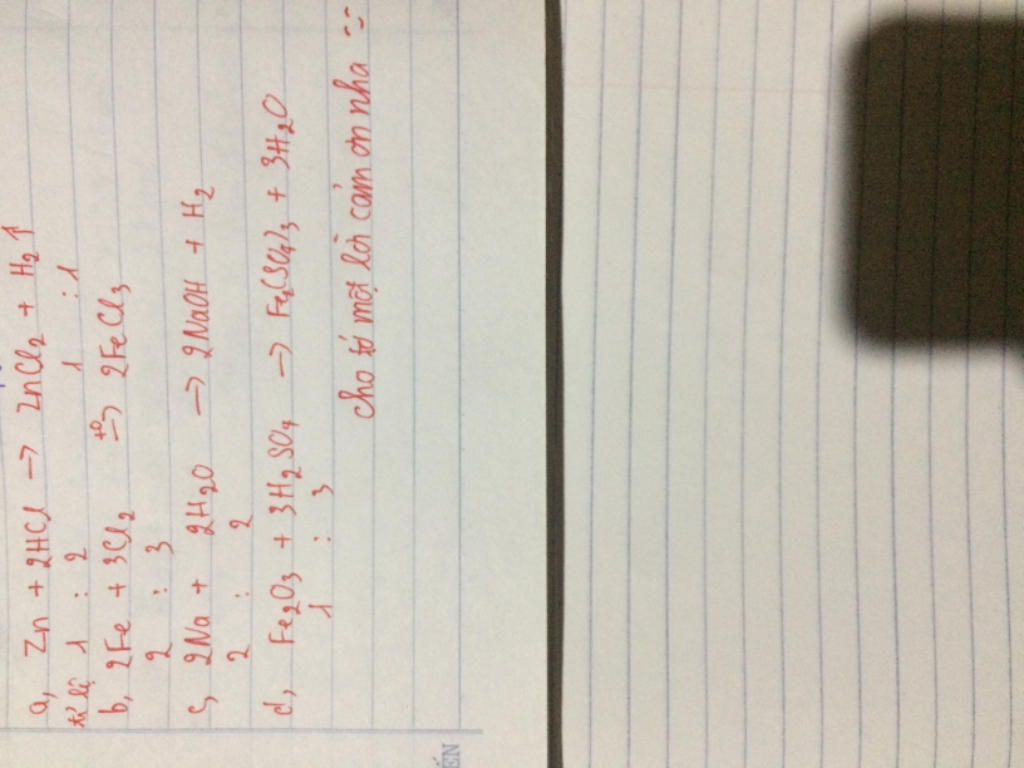 a, Zn + 2HCl → ZnCl2 + H2↑
tỉ lệ 1 : 2 1 : 1
b, 2Fe + 3Cl2 t0→ 2FeCl3
2 : 3
c, 2Na + 2H2O → 2NaOH + H2
2 : 2
d, Fe2O3 + 3H2SO4 → Fe2(SO4)3 + 3H2O
1 : 3
cho tớ một lời cảm ơn nha
ẾN